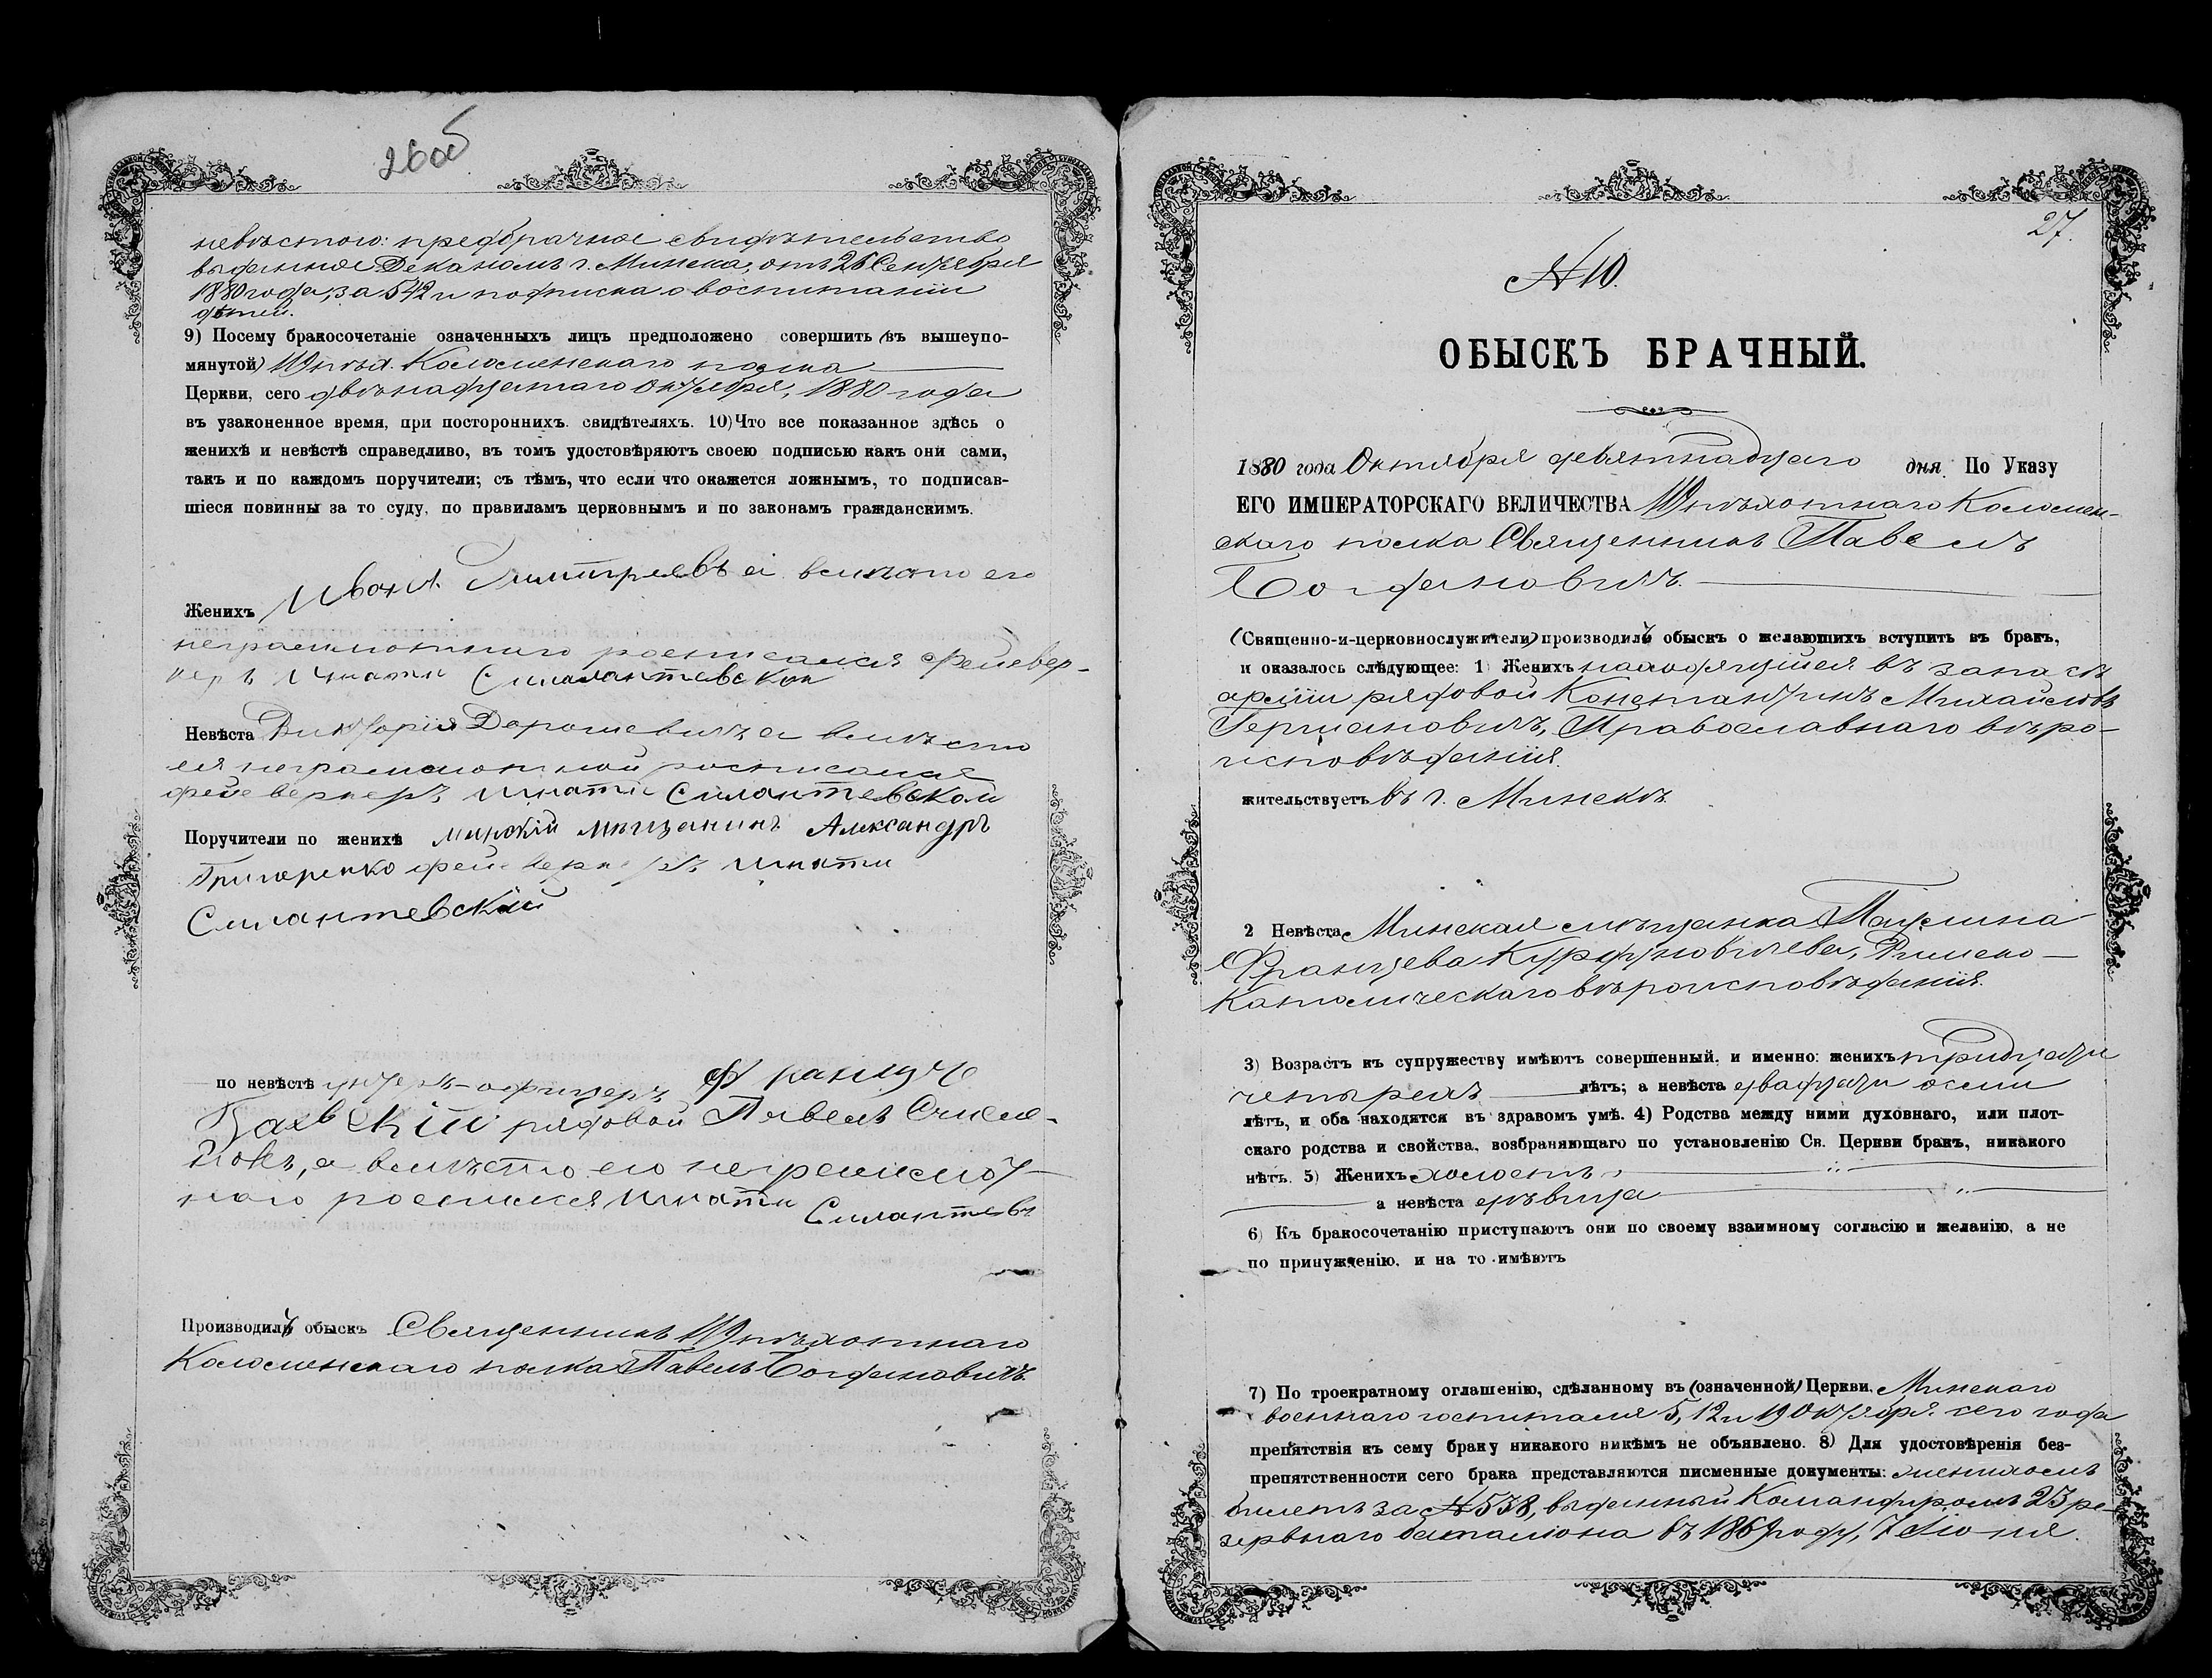 26 об
невѣстою: предбрачное свидѣтельство
выданное Деканомъ г. Минска, отъ 26 Сентября
1880 года, за 542 и подписка о воспитаніи
дѣтей.
9) Посему бракосочетаніе означенныхъ лицъ предположено совершить (въ вышеупо-
мянутой) 119 пѣх. Коломенскаго полка
Церкви, сего двѣнадцатаго Октября, 1880 года
въ узаконенное время, при постороннихъ свидѣтеляхъ. 10) Что все показанное здѣсь о
женихѣ и невѣстѣ справедливо, въ томъ удостовѣряютъ своею подписью какъ они сами,
такъ и по каждомъ поручители; съ тѣмъ, что если что окажется ложнымъ, то подписав-
шіеся повинны за то суду, по правиламъ церковнымъ и по законамъ гражданскимъ.
Женихъ Иванъ Дмитріевъ а вмѣсто его
неграмотнаго росписался фейевер-
керъ Игнати Силантевской
Невѣста Викторія Дорошевичъ а вмѣсто
ея неграмотной росписался
фейеверкеръ Игнати Силантевской
Поручители по женихѣ минскій мѣщанинъ Александръ
Григоренко фейеверкеръ Игнати
Силантевскій
по невѣстѣ унтеръ-офицеръ
рядовой Павелъ
а вмѣсто его неграмот-
наго росписался Игнати Силантевъ
Производилъ обыскъ Священникъ 119 пѣхотнаго
Коломенскаго полка Павелъ Богдановичъ.
27.
№ 10.
ОБЫСКЪ БРАЧНЫЙ.
1880 года Октября девятнадцаго дня По Указу
ЕГО ИМПЕРАТОРСКАГО ВЕЛИЧЕСТВА 119 пѣхотнаго Коломен-
скаго полка Священникъ Павелъ
Богдановичъ.
(Священно-и-церковнослужители) производилъ обыскъ о желающихъ вступить въ бракъ,
и оказалось слѣдующее: 1) Женихъ находящійся въ запасѣ
арміи рядовой Константинъ Михайловъ
Германовичъ, Православнаго вѣро-
исповѣданія.
жительствуетъ въ г. Минскѣ.
2 Невѣста Минская мѣщанка Паулина
Францева Римско-
Католическаго вѣроисповѣданія.
3) Возрастъ къ супружеству имѣютъ совершенный, и именно: женихъ тридцати
четырехъ лѣтъ; а невѣста двадцати осми
лѣтъ, и оба находятся въ здравомъ умѣ. 4) Родства между ними духовнаго, или плот-
скаго родства и свойства, возбраняющаго по установленію Св. Церкви бракъ, никакого
нѣтъ. 5) Женихъ холостъ
а невѣста дѣвица
6) Къ бракосочетанію приступаютъ они по своему взаимному согласію и желанію, а не
по принужденію, и на то имѣютъ
7) По троекратному оглашенію, сдѣланному въ (означенной) Церкви, Минскаго
военнаго госпиталя 5, 12 и 19 Октября сего года
препятствія къ сему браку никакого никѣмъ не объявлено. 8) Для удостовѣренія без-
препятственности сего брака представляются писменные документы: женихомъ
билетъ за № 538, выданный Командиромъ 23 ре-
зервнаго баталіона въ 1869 году, 7 Іюня.